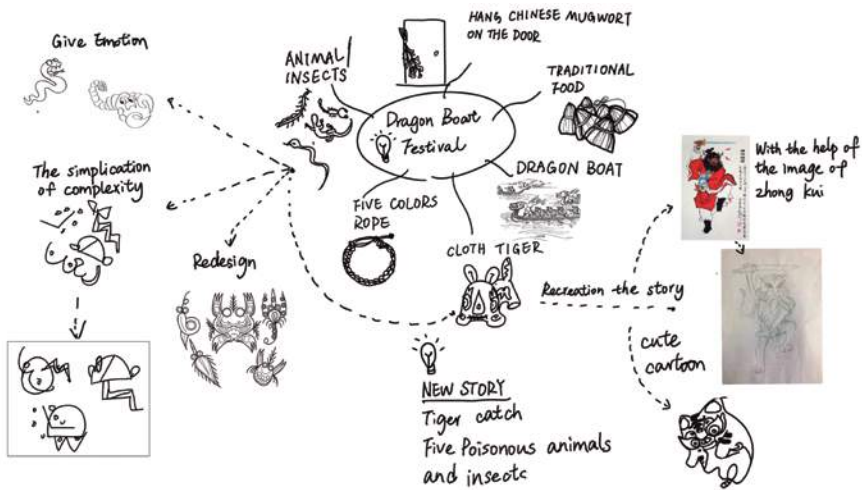 Give Emotion
The simplication
of complexity
Redesign
ANIMAL/
INSECTS
HANG CHINESE MUGWORT
ON THE DOOR
TRADITIONAL
FOOD
Dragon Boat
Festival
DRAGON BOAT
FIVE COLORS
ROPE
CLOTH TIGER
Recreation the story
With the help of
the image of
zhong kui
cute
cartoon
NEW STORY
Tiger catch
Five Poisonous animals
and insects